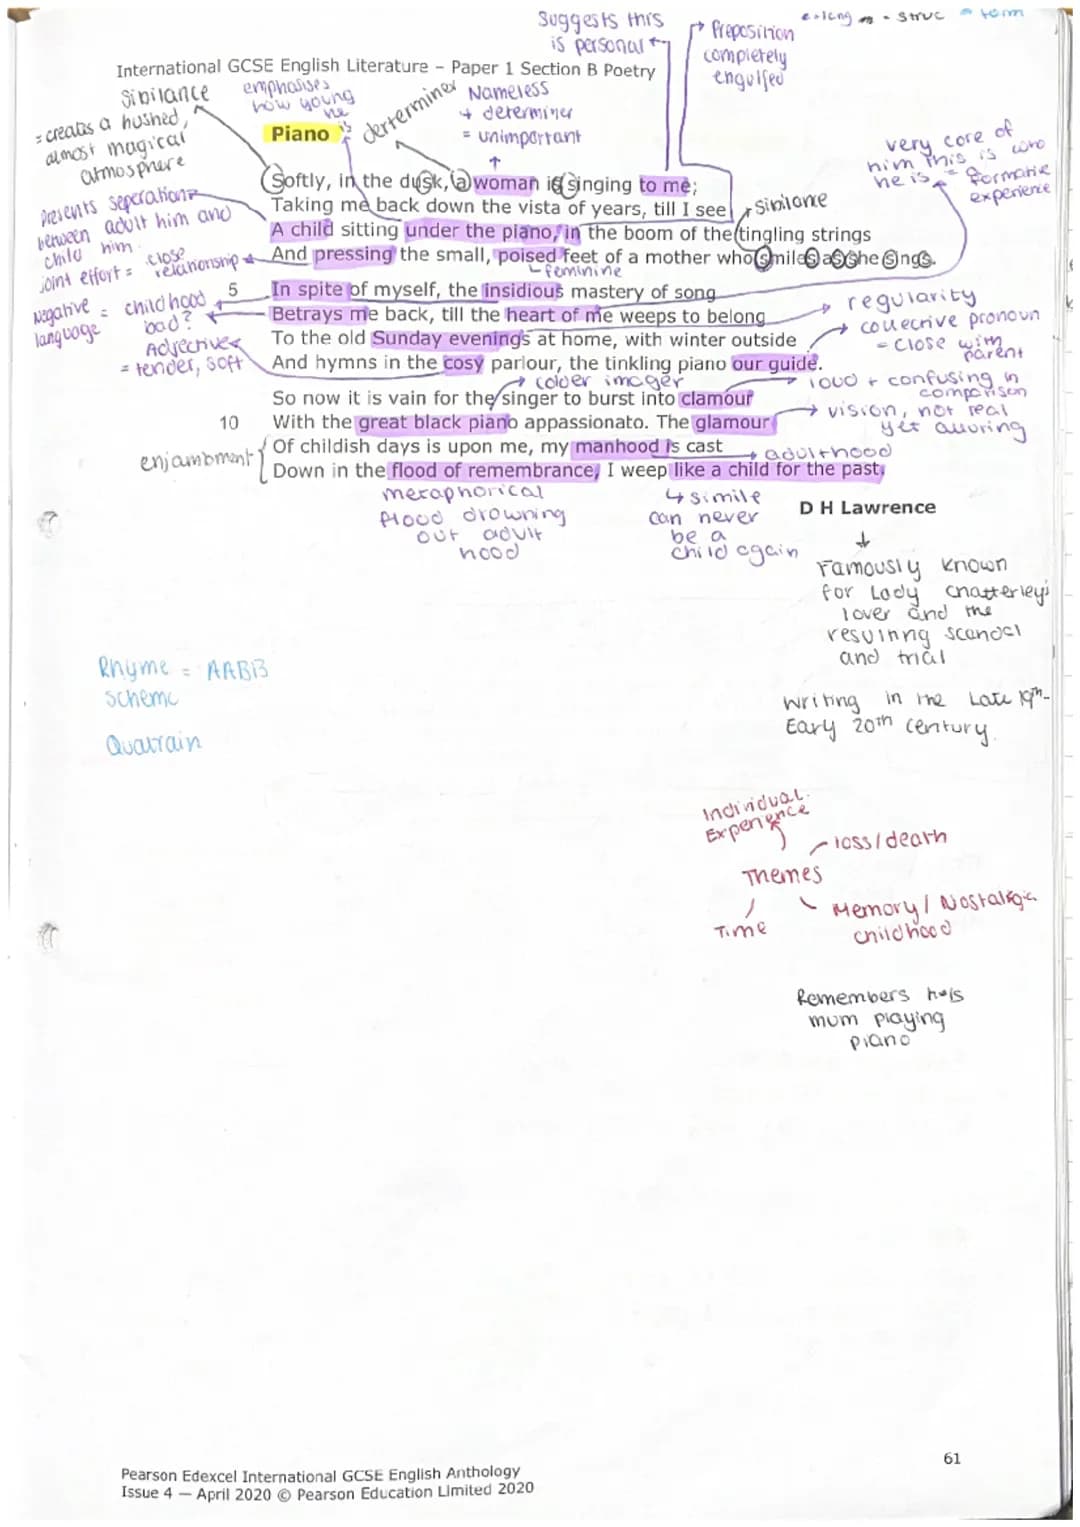 Suggests this
is personal
Preposition
completely
engulfed
= lang = struc = form
International GCSE English Literature – Paper 1 Section B Poetry
Sibilance
= creates a hushed,
almost magical
atmosphere
emphasises
how young
he
is
derterminer
Nameless
+ determiner
= unimportant
Piano
very core of
him this is who
he is = a
formative
experience
Softly, in the dusk, a woman is singing to me;
Taking me back down the vista of years, till I see
A child sitting under the piano, in the boom of the tingling strings
And pressing the small, poised feet of a mother who smiles as she sings.
sibilance
feminine
Presents seperation
between adult him and
child him.
joint effort = close
relationship
5 In spite of myself, the insidious mastery of song
Betrays me back, till the heart of me weeps to belong
To the old Sunday evenings at home, with winter outside
And hymns in the cosy parlour, the tinkling piano our guide.
Negative = childhood
language bad?
Adjective
= tender, soft
regularity
collective pronoun
= close with
parent
colder imager
loud + confusing in
comparison
So now it is vain for the singer to burst into clamour
10 With the great black piano appassionato. The glamour
Of childish days is upon me, my manhood is cast
Down in the flood of remembrance, I weep like a child for the past.
vision, not real
yet alluring
enjambment
adulthood
metaphorical
flood drowning
out adult
hood
simile
can never
be a
child again
D H Lawrence
Famously known
for Lady Chatterley's
lover and the
resulting scandal
and trial
Rhyme = AABB
scheme
Quatrain
Writing in the Late 19th-
Early 20th century.
Individual
Experience
loss/death
Themes
Memory / Nostalgia
childhood
Time
Remembers his
mum playing
piano
61
Pearson Edexcel International GCSE English Anthology
Issue 4 — April 2020 © Pearson Education Limited 2020